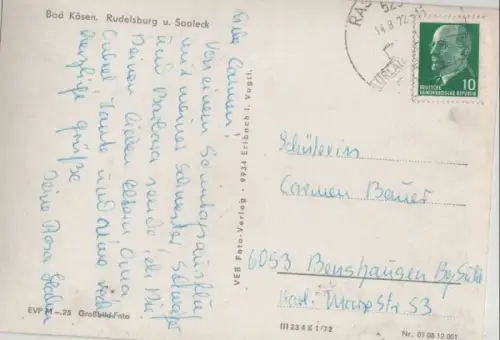 Bad Kösen. Rudelsburg u. Saaleck
Liebe Carmen!
Von einem Sonntagsausflug
mit meiner Schwester, Schwager
und Barbara sende ich Dir
Deinen lieben Eltern Oma
Onkel, Tante und
herzliche Grüße
Deine Rosa
EVP M –.25 Großbild-Foto
VEB Foto-Verlag · 9934 Erlbach i. Vogtl.
14.8.72
DEUTSCHE
DEMOKRATISCHE REPUBLIK
10
Schülerin
Carmen Bauer
6053 Benshausen Bez. Suhl
Karl-Marx Str. 53
III 23 4 K 1/72
Nr. 01 08 12 001